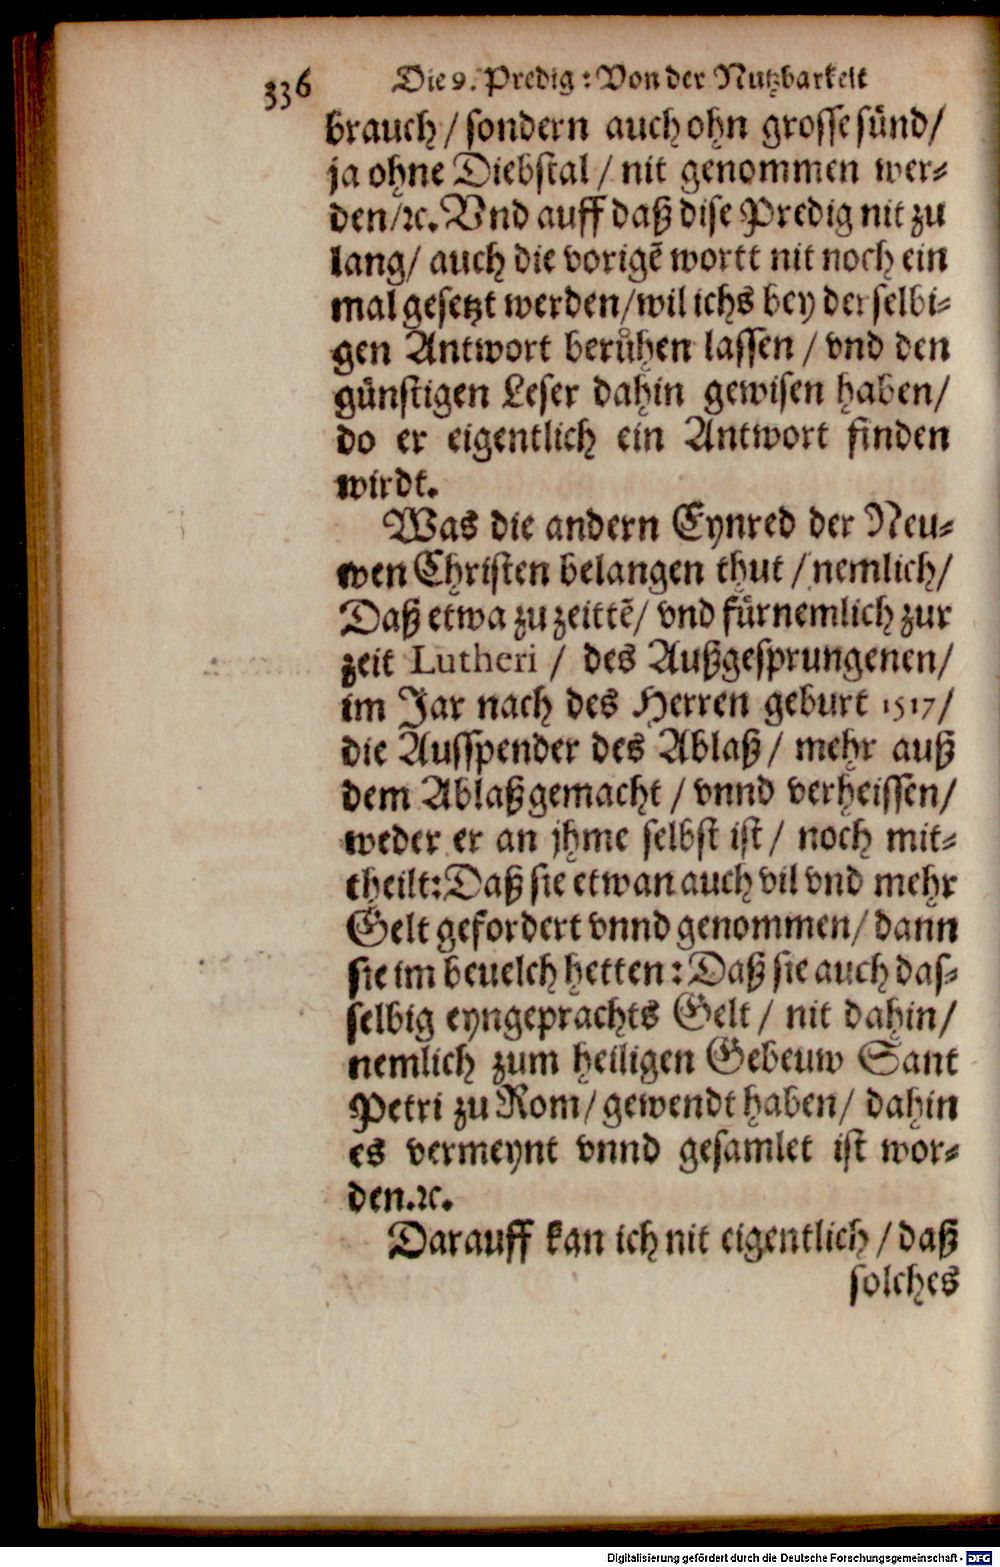 336 Die 9. Predig: Von der Nutzbarkeit
brauch / sondern auch ohn grosse sünd /
ja ohne Diebstal / nit genommen wer⸗
den / ꝛc. Vnd auff daß dise Predig nit zu
lang / auch die vorigẽ wortt nit noch ein
mal gesetzt werden / wil ichs bey der selbi⸗
gen Antwort berůhen lassen / vnd den
günstigen Leser dahin gewisen haben /
do er eigentlich ein Antwort finden
wirdt.
Was die andern Eynred der Neu⸗
wen Christen belangen thut / nemlich /
Daß etwa zu zeittẽ / vnd fürnemlich zur
zeit Lutheri / des Außgesprungenen /
im Jar nach des Herren geburt 1517 /
die Ausspender des Ablaß / mehr auß
dem Ablaß gemacht / vnnd verheissen /
weder er an jhme selbst ist / noch mit⸗
theilt: Daß sie etwan auch vil vnd mehr
Gelt gefordert vnnd genommen / dann
sie im beuelch hetten: Daß sie auch das⸗
selbig eyngeprachts Gelt / nit dahin /
nemlich zum heiligen Gebeuw Sant
Petri zu Rom / gewendt haben / dahin
es vermeynt vnnd gesamlet ist wor⸗
den. ꝛc.
Darauff kan ich nit eigentlich / daß
solches
Digitalisierung gefördert durch die Deutsche Forschungsgemeinschaft - DFG